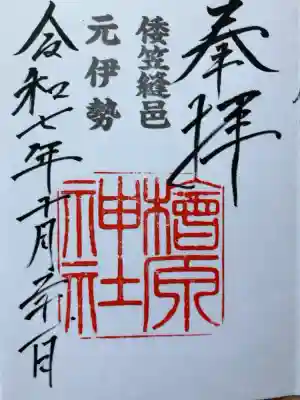 奉拝
倭笠縫邑
元伊勢
檜原
神社
令和七年十一月